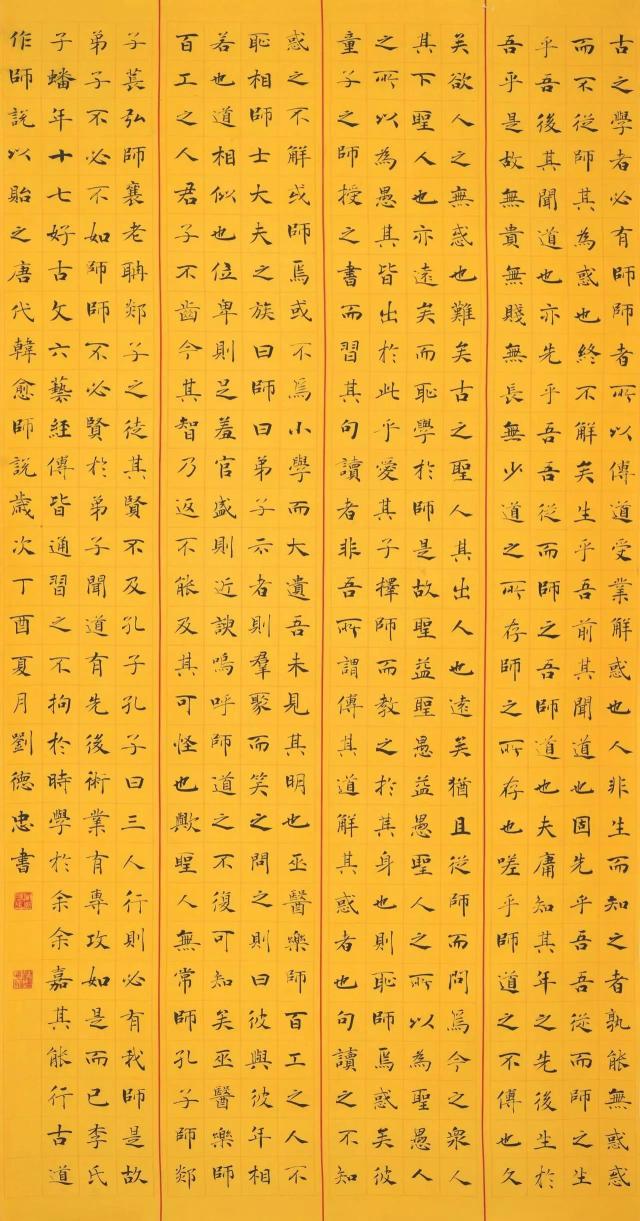 古之學者必有師師者所以傳道受業解惑也人非生而知之者孰能無惑惑
而不從師其為惑也終不解矣生乎吾前其聞道也固先乎吾吾從而師之生
乎吾後其聞道也亦先乎吾吾從而師之吾師道也夫庸知其年之先後生於
吾乎是故無貴無賤無長無少道之所存師之所存也嗟乎師道之不傳也久
矣欲人之無惑也難矣古之聖人其出人也遠矣猶且從師而問焉今之衆人
其下聖人也亦遠矣而恥學於師是故聖益聖愚益愚聖人之所以為聖愚人
之所以為愚其皆出於此乎愛其子擇師而教之於其身也則恥師焉惑矣彼
童子之師授之書而習其句讀者非吾所謂傳其道解其惑者也句讀之不知
惑之不解或師焉或不焉小學而大遺吾未見其明也巫醫樂師百工之人不
恥相師士大夫之族曰師曰弟子云者則羣聚而笑之問之則曰彼與彼年相
若也道相似也位卑則足羞官盛則近諛嗚呼師道之不復可知矣巫醫樂師
百工之人君子不齒今其智乃返不能及其可怪也歟聖人無常師孔子師郯
子萇弘師襄老聃郯子之徒其賢不及孔子孔子曰三人行則必有我師是故
弟子不必不如師師不必賢於弟子聞道有先後術業有專攻如是而已李氏
子蟠年十七好古文六藝經傳皆通習之不拘於時學於余余嘉其能行古道
作師說以貽之唐代韓愈師說歲次丁酉夏月劉德忠書